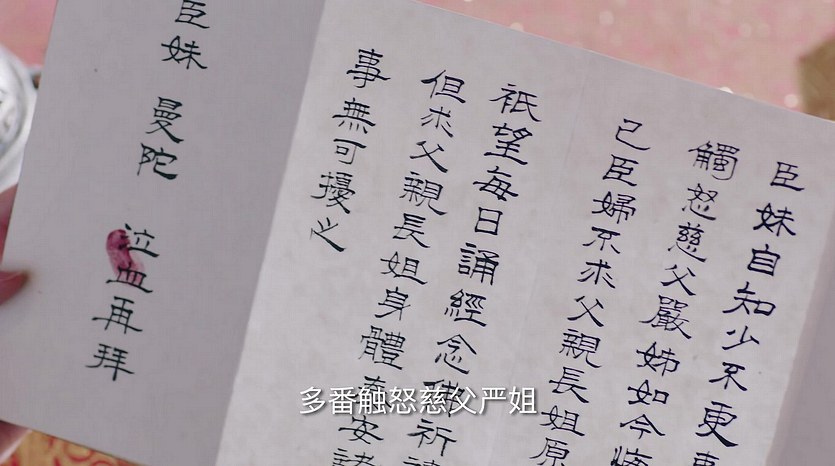 臣妹自知少不更
觸怒慈父嚴姊如今悔
己臣婦不求父親長姐原
衹望每日誦經念佛祈
但求父親長姐身體安諸
事無可擾心
臣妹 曼陀 泣血再拜
多番触怒慈父严姐